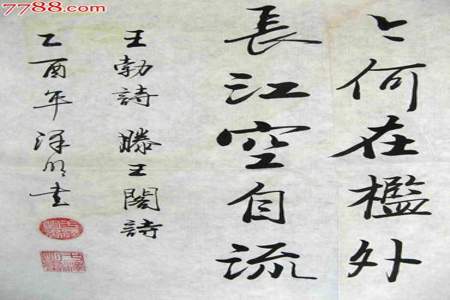 7788.com
今何在檻外
長江空自流
王勃詩 滕王閣詩
乙酉年 書